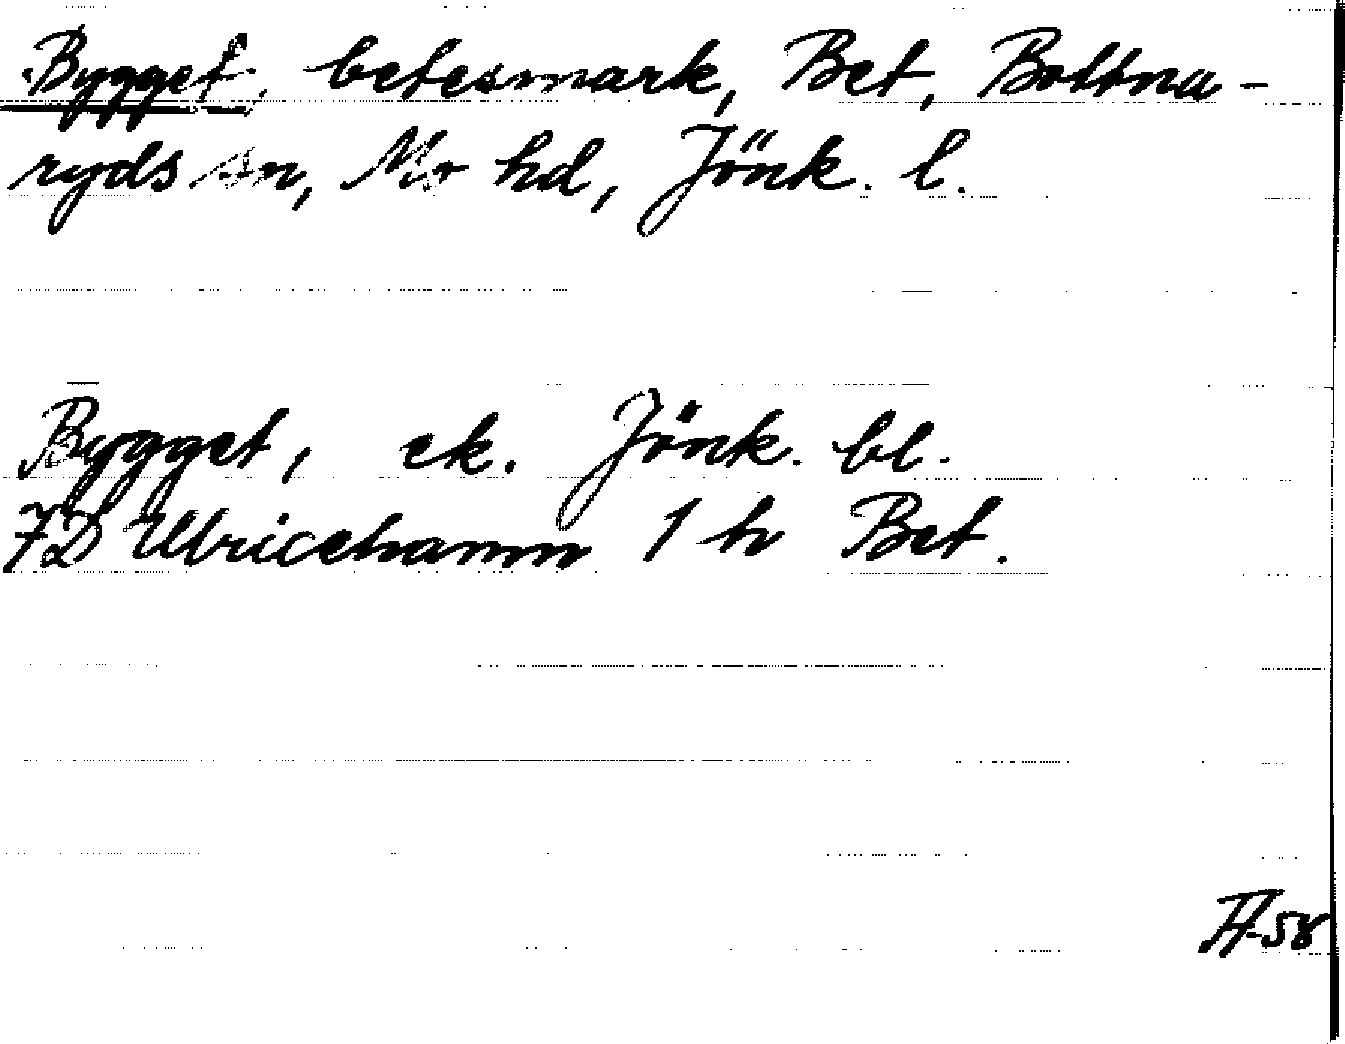 Bygget, betesmark, Bet, Bottna-
ryds sn, Mo hd, Jönk. l.
Bygget, ek. Jönk. bl.
7D Ulricehamn 1 h Bet.